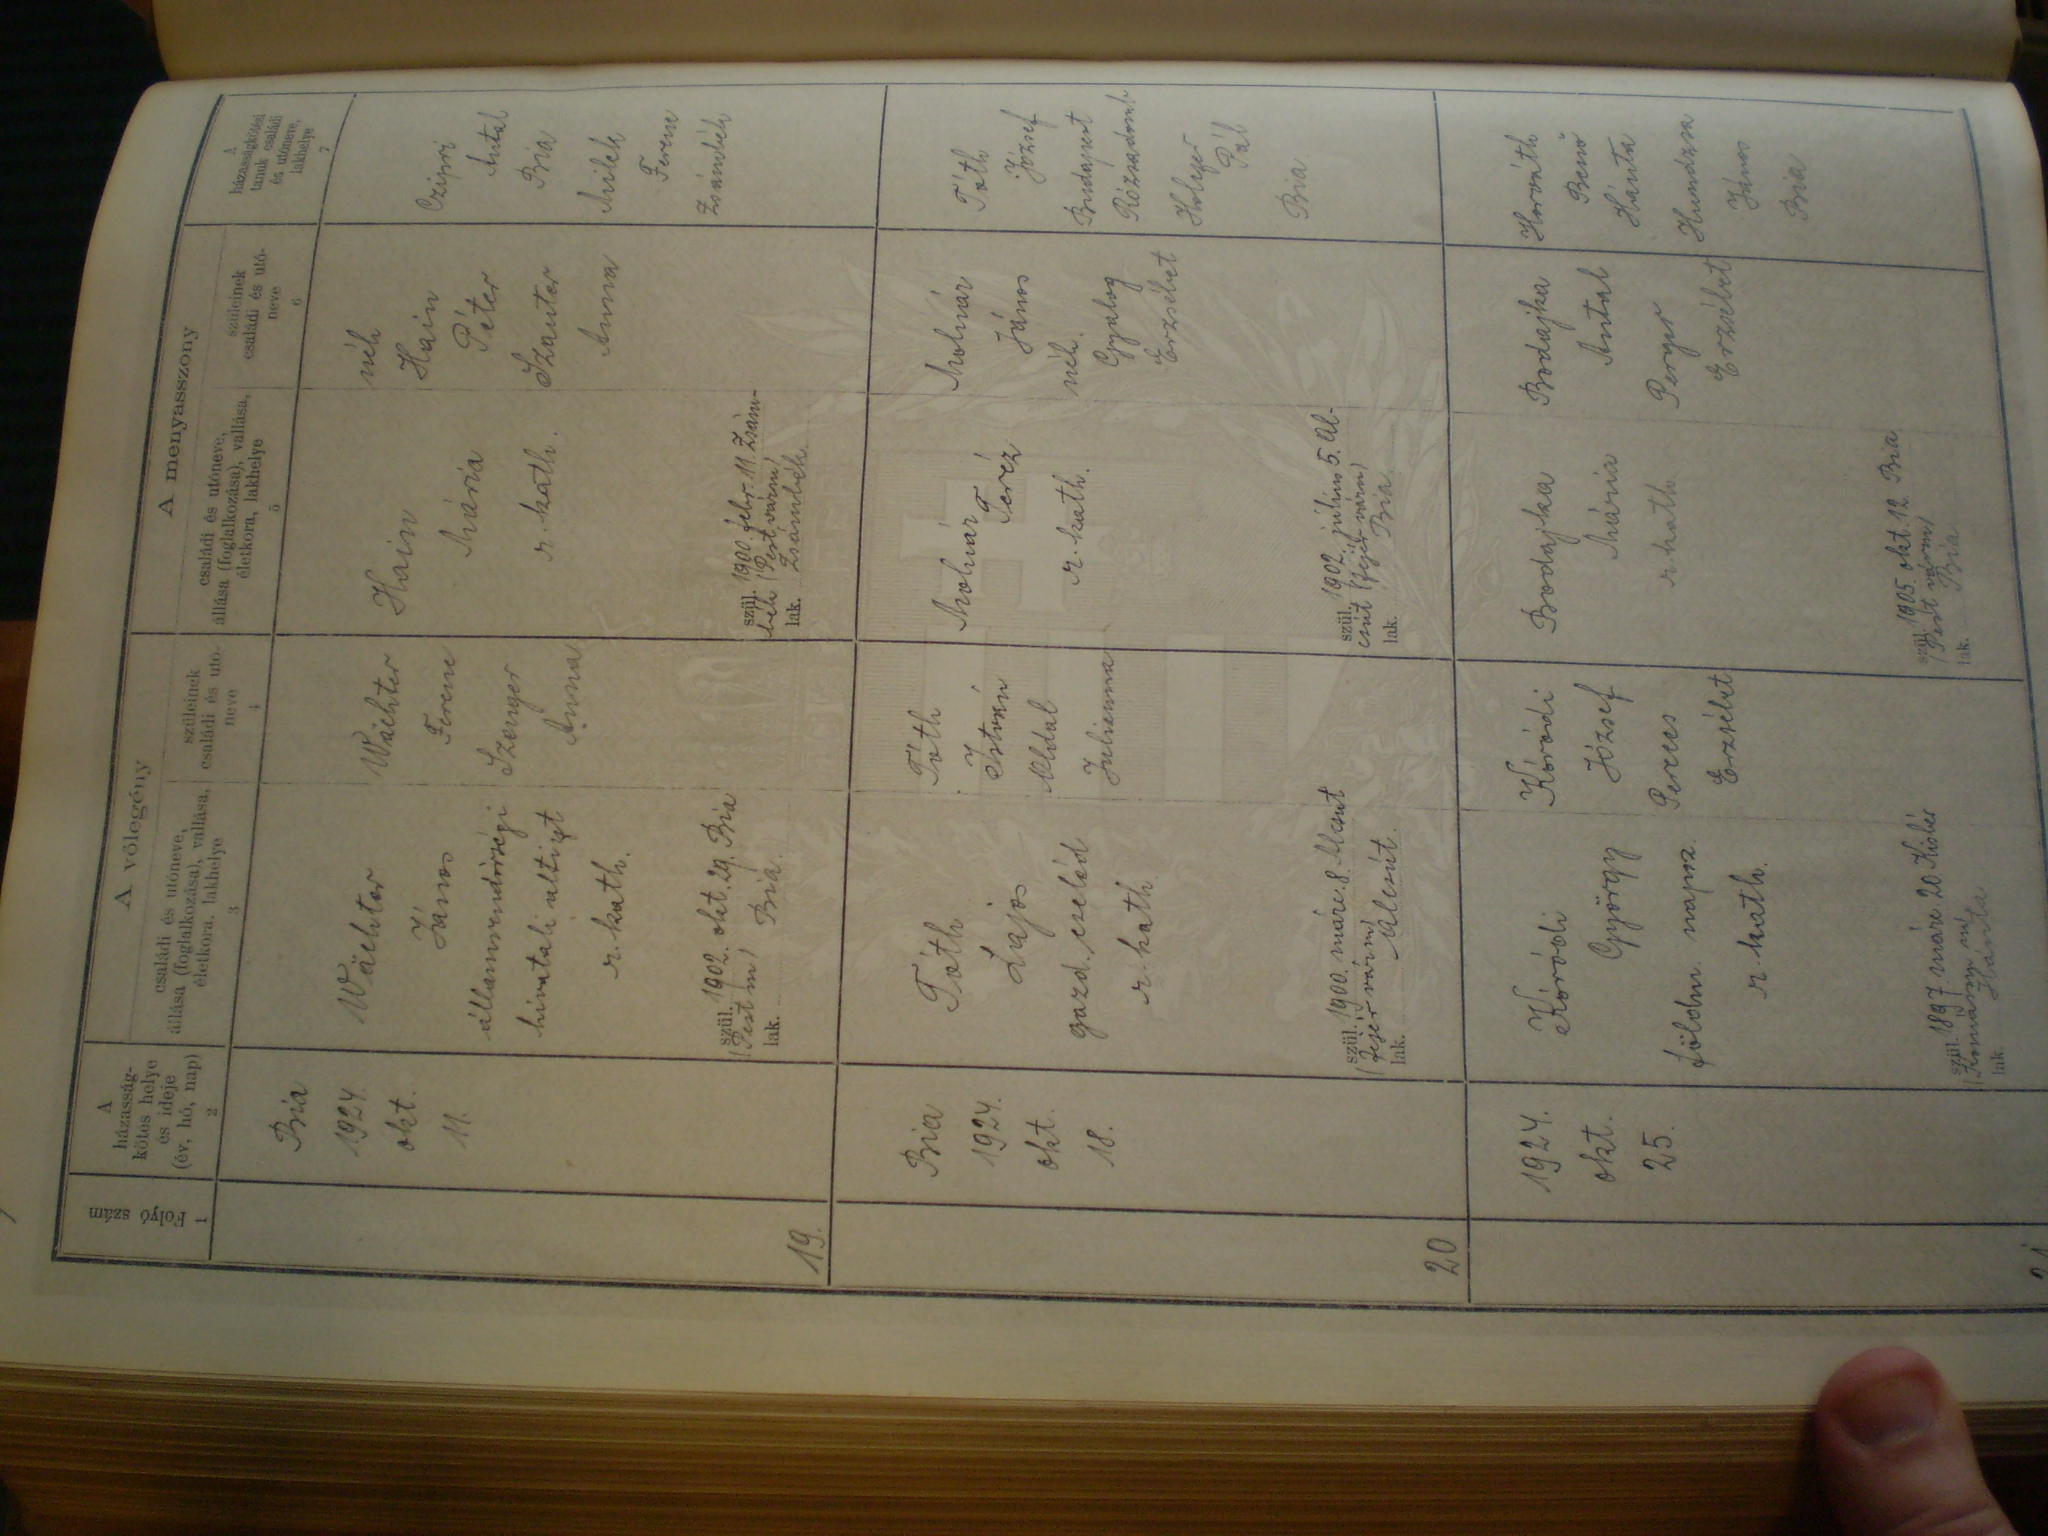 1
Folyó szám
A
házasság-
kötés helye
és ideje
(év, hó, nap)
2
A vőlegény
családi és utóneve,
állása (foglalkozása), vallása,
életkora, lakhelye
3
szüleinek
családi és utó-
neve
4
A menyasszony
családi és utóneve,
állása (foglalkozása), vallása,
életkora, lakhelye
5
szüleinek
családi és utó-
neve
6
A
házasságkötési
tanuk családi
és utóneve,
lakhelye
7
19.
Bia
1924.
okt.
11.
Wächter
János
államrendőrségi
hivatali altiszt
r. kath.
szül. 1902. okt. 29. Bia
(Pest m)
lak. Bia.
Wächter
Ferenc
Szenger
Anna
Hain
Mária
r. kath.
szül. 1900. febr. 11. Zsám-
bék (Pest várm)
lak. Zsámbék.
néh
Hain
Péter
Szauter
Anna
Czipri
Antal
Bia
Milch
Ferenc
Zsámbék
20
Bia
1924.
okt.
18.
Tóth
Lajos
gazd. cseléd
r. kath
szül. 1900. márc. 8. Alcsut
(Fejér várm)
lak. Alcsút.
Tóth
István
Oldal
Julianna
Molnár
Teréz
r. kath.
szül. 1902. július 5. Al-
csút (Fejér várm)
lak. Bia.
Molnár
János
néh.
Gyalog
Erzsébet
Tóth
József
Budapest
Rózsadomb
Holczer
Pál
Bia
21
1924.
okt.
25.
Kóródi
György
földm. napsz.
r. kath.
szül. 1897. márc. 20 Kisbér
(Komárom m)
lak. Hánta
Kóródi
József
Pereces
Erzsébet
Bodajka
Mária
r. kath
szül. 1905. okt. 12. Bia
(Pest várm)
lak. Bia
Bodajka
Antal
Perger
Erzsébet
Horváth
Benő
Hánta
János
Bia